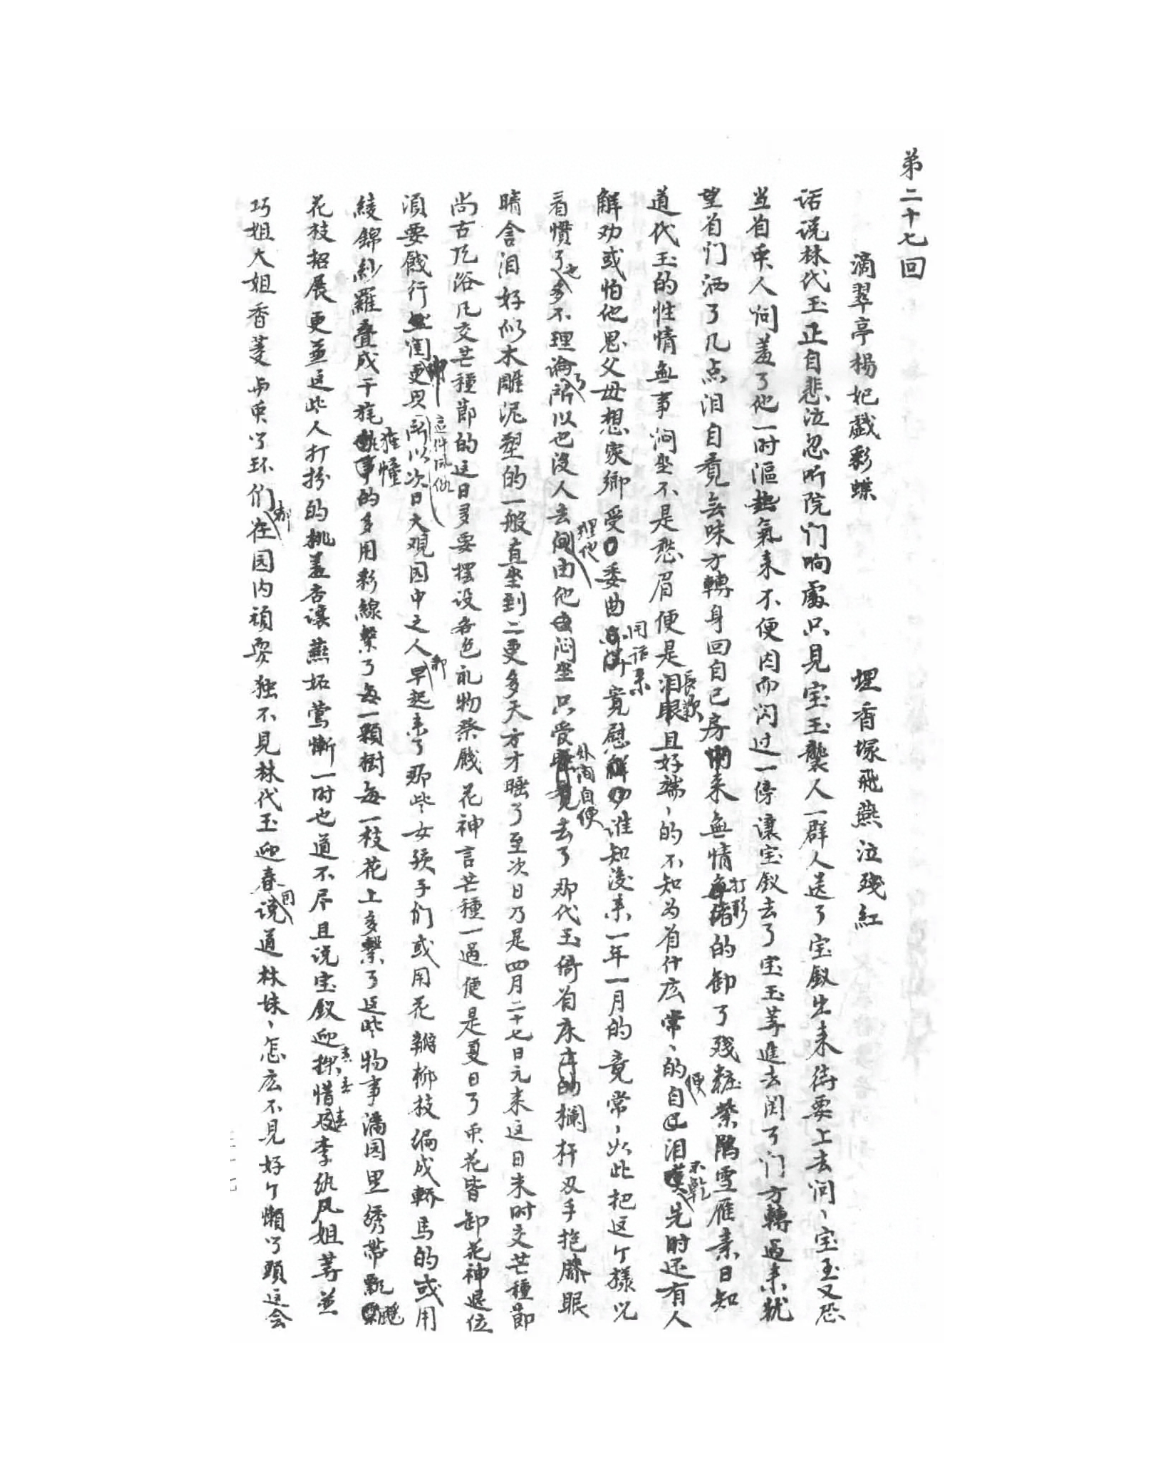 第二十七回
滴翠亭楊妃戲彩蝶 埋香塚飛燕泣殘紅
话说林代玉正自悲泣忽听院门响處只見宝玉襲人一群人送了宝釵出来待要上去问、宝玉又恐
当着众人问羞了他一时漚熱氣来不便因而闪过一傍讓宝釵去了宝玉等進去関了门方轉過来犹
望着门洒了几点泪自覔無味方轉身回自己房来無情打彩的卸了殘粧紫鵑雪雁素日知
道代玉的性情無事闷坐不是愁眉便是長歎且好端、的不知为着什庅常、的便自己泪不乾先时还有人
解劝或怕他思父母想家鄉受委曲用话来寬慰谁知後来一年一月的竟常、如此把这个樣兒
看慣了也多不理論了所以也没人去理他由他闷坐只受外间自便去了那代玉倚着床的欄杆双手抱膝眼
睛含泪好似木雕泥塑的一般直坐到二更多天方才睡了至次日乃是四月二十七日元来这日未时交芒種節
尚古风俗凡交芒種節的这日多要擺设各色礼物祭餞花神言芒種一過便是夏日了众花皆卸花神退位
須要餞行闺中更興这件風俗所以次日大觀园中之人都早起来了那些女孩子们或用花瓣柳枝编成轎馬的或用
綾錦紗羅叠成干旄旌幢的多用彩線繫了每一顆樹每一枝花上多繫了这些物事满园里綉带飄飖
花枝招展更並这些人打扮的桃羞杏讓燕妬鶯慚一时也道不尽且说宝釵迎春探春惜春李纨凤姐等並
巧姐大姐香菱与众丫环们都在园内頑耍独不見林代玉迎春因说道林妹、怎庅不見好个懶丫頭这会